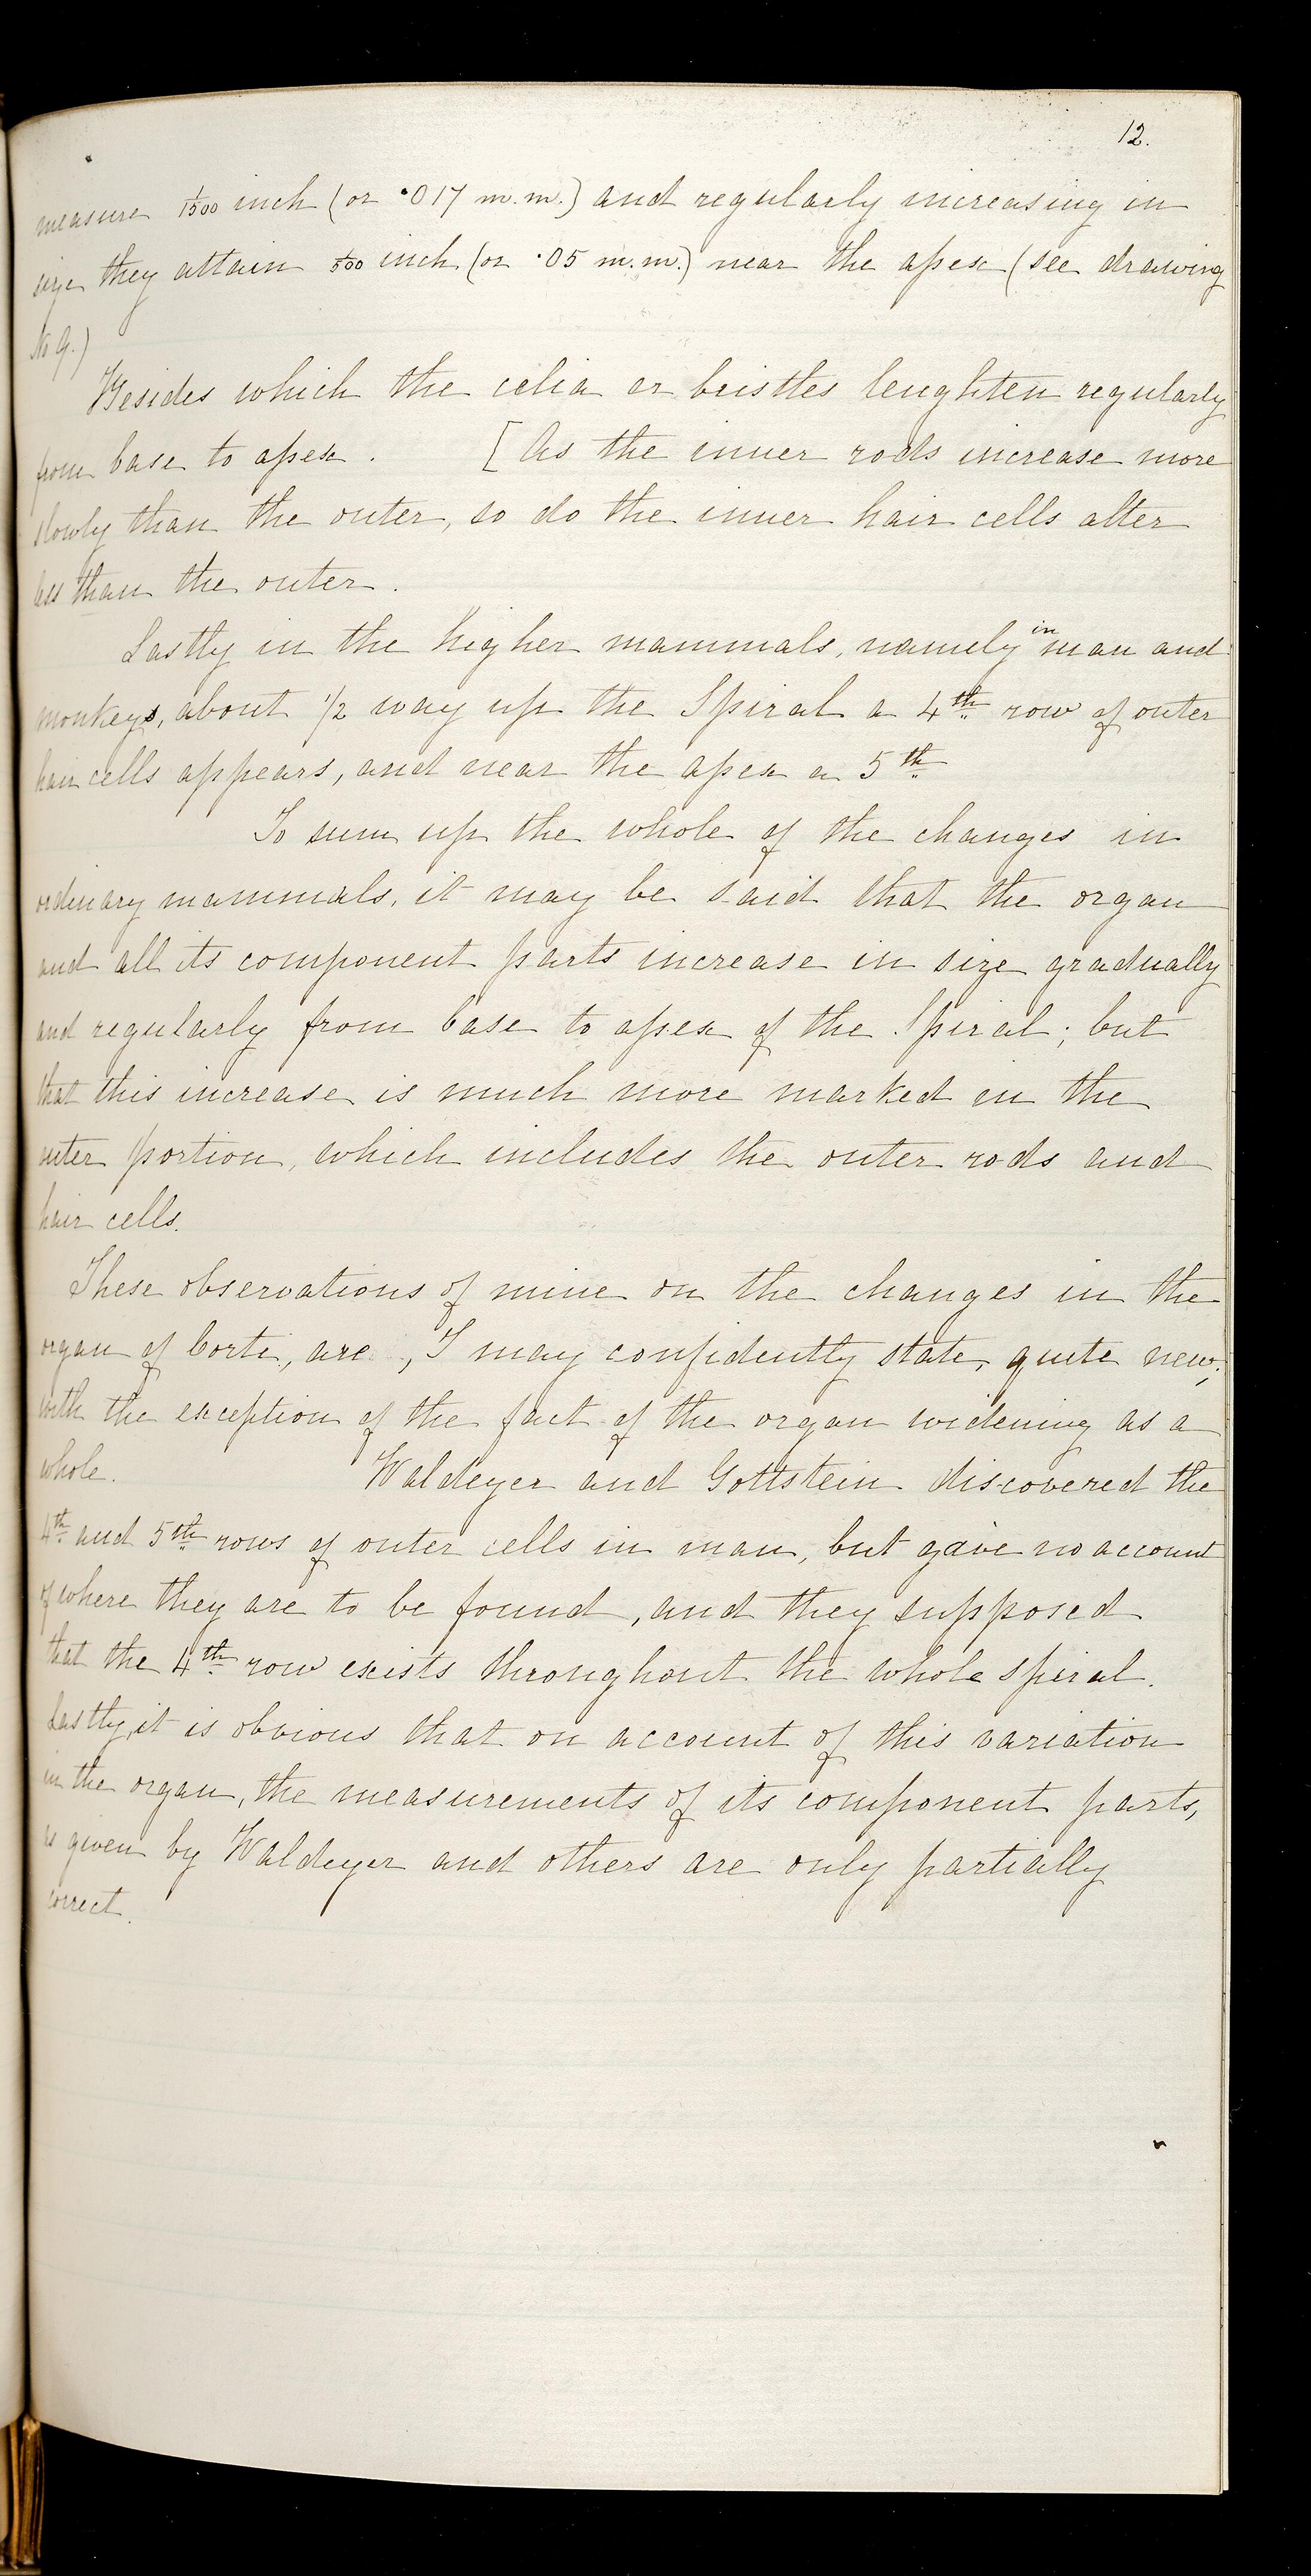 12.
measure 1/1500 inch (or ·017 m.m.) and regularly increasing in
size they attain 1/500 inch (or ·05 m.m.) near the apex (see drawing
No 9.)
Besides which the celia or bristles lenghten regularly
from base to apex. [As the inner rods increase more
slowly than the outer, so do the inner hair cells alter
less than the outer.
Lastly in the higher mammals, namely in man and
monkeys, about 1/2 way up the Spiral a 4th row of outer
hair cells appears, and near the apex a 5th
To sum up the whole of the changes in
ordinary mammals, it may be said that the organ
and all its component parts increase in size gradually
and regularly from base to apex of the Spiral; but
that this increase is much more marked in the
outer portion, which includes the outer rods and
hair cells.
These observations of mine on the changes in the
organ of Corti, are, I may confidently state, quite new;
with the exception of the fact of the organ widening as a
whole. Waldeyer and Gottstein discovered the
4th and 5th rows of outer cells in man, but gave no account
of where they are to be found, and they supposed
that the 4th row exists throughout the whole spiral.
Lastly, it is obvious that on account of this variation
in the organ, the measurements of its component parts,
as given by Waldeyer and others are only partially
correct.